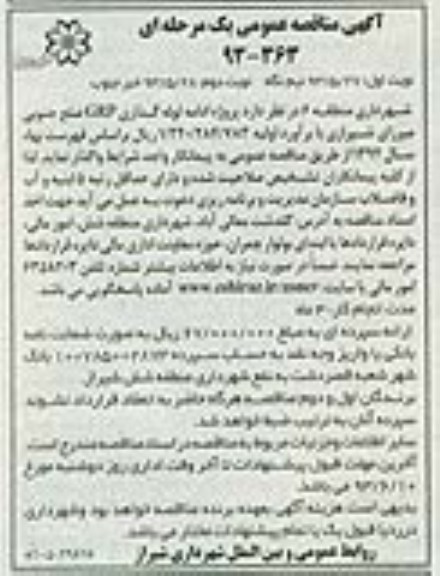 آگهی مناقصه عمومی یک مرحله ای
۹۳-۳۶۳
نوبت اول: ۹۳/۵/۲۷ نیم نگاه نوبت دوم: ۹۳/۵/۲۸ خبر جنوب
شهرداری منطقه ۶ در نظر دارد پروژه ادامه لوله گذاری GRP ضلع جنوبی
شیرازی با برآورد اولیه ریال براساس فهرست بهاء
سال ۱۳۹۳ از طریق مناقصه عمومی به پیمانکار واجد شرایط واگذار نماید. لذا
از کلیه پیمانکاران تشخیص صلاحیت شده و دارای حداقل رتبه ۵ ابنیه و آب
و فاضلاب سازمان مدیریت و برنامه ریزی دعوت به عمل می آید جهت اخذ
اسناد مناقصه به آدرس: گلدشت معالی آباد، شهرداری منطقه شش، امور مالی،
دایره قراردادها یا ابتدای بولوار چمران، حوزه معاونت اداری مالی دایره قراردادها
مراجعه نمایند. ضمناً در صورت نیاز به اطلاعات بیشتر شماره تلفن
امور مالی یا سایت آماده پاسخگویی می باشد.
مدت انجام کار: ۳۰ ماه
ارائه سپرده ای به مبلغ ریال به صورت ضمانت نامه
بانکی یا واریز وجه نقد به حساب سپرده بانک
شهر شعبه قصردشت به نفع شهرداری منطقه شش شیراز.
برندگان اول و دوم مناقصه هرگاه حاضر به انعقاد قرارداد نشوند
سپرده آنان به ترتیب ضبط خواهد شد.
سایر اطلاعات و جزئیات مربوط به مناقصه در اسناد مناقصه مندرج است.
آخرین مهلت قبول پیشنهادات تا آخر وقت اداری روز دوشنبه مورخ
۹۳/۶/۱۰ می باشد.
بدیهی است هزینه آگهی بعهده برنده مناقصه خواهد بود و شهرداری
در رد یا قبول یک یا تمام پیشنهادات مختار می باشد.
روابط عمومی و بین الملل شهرداری شیراز